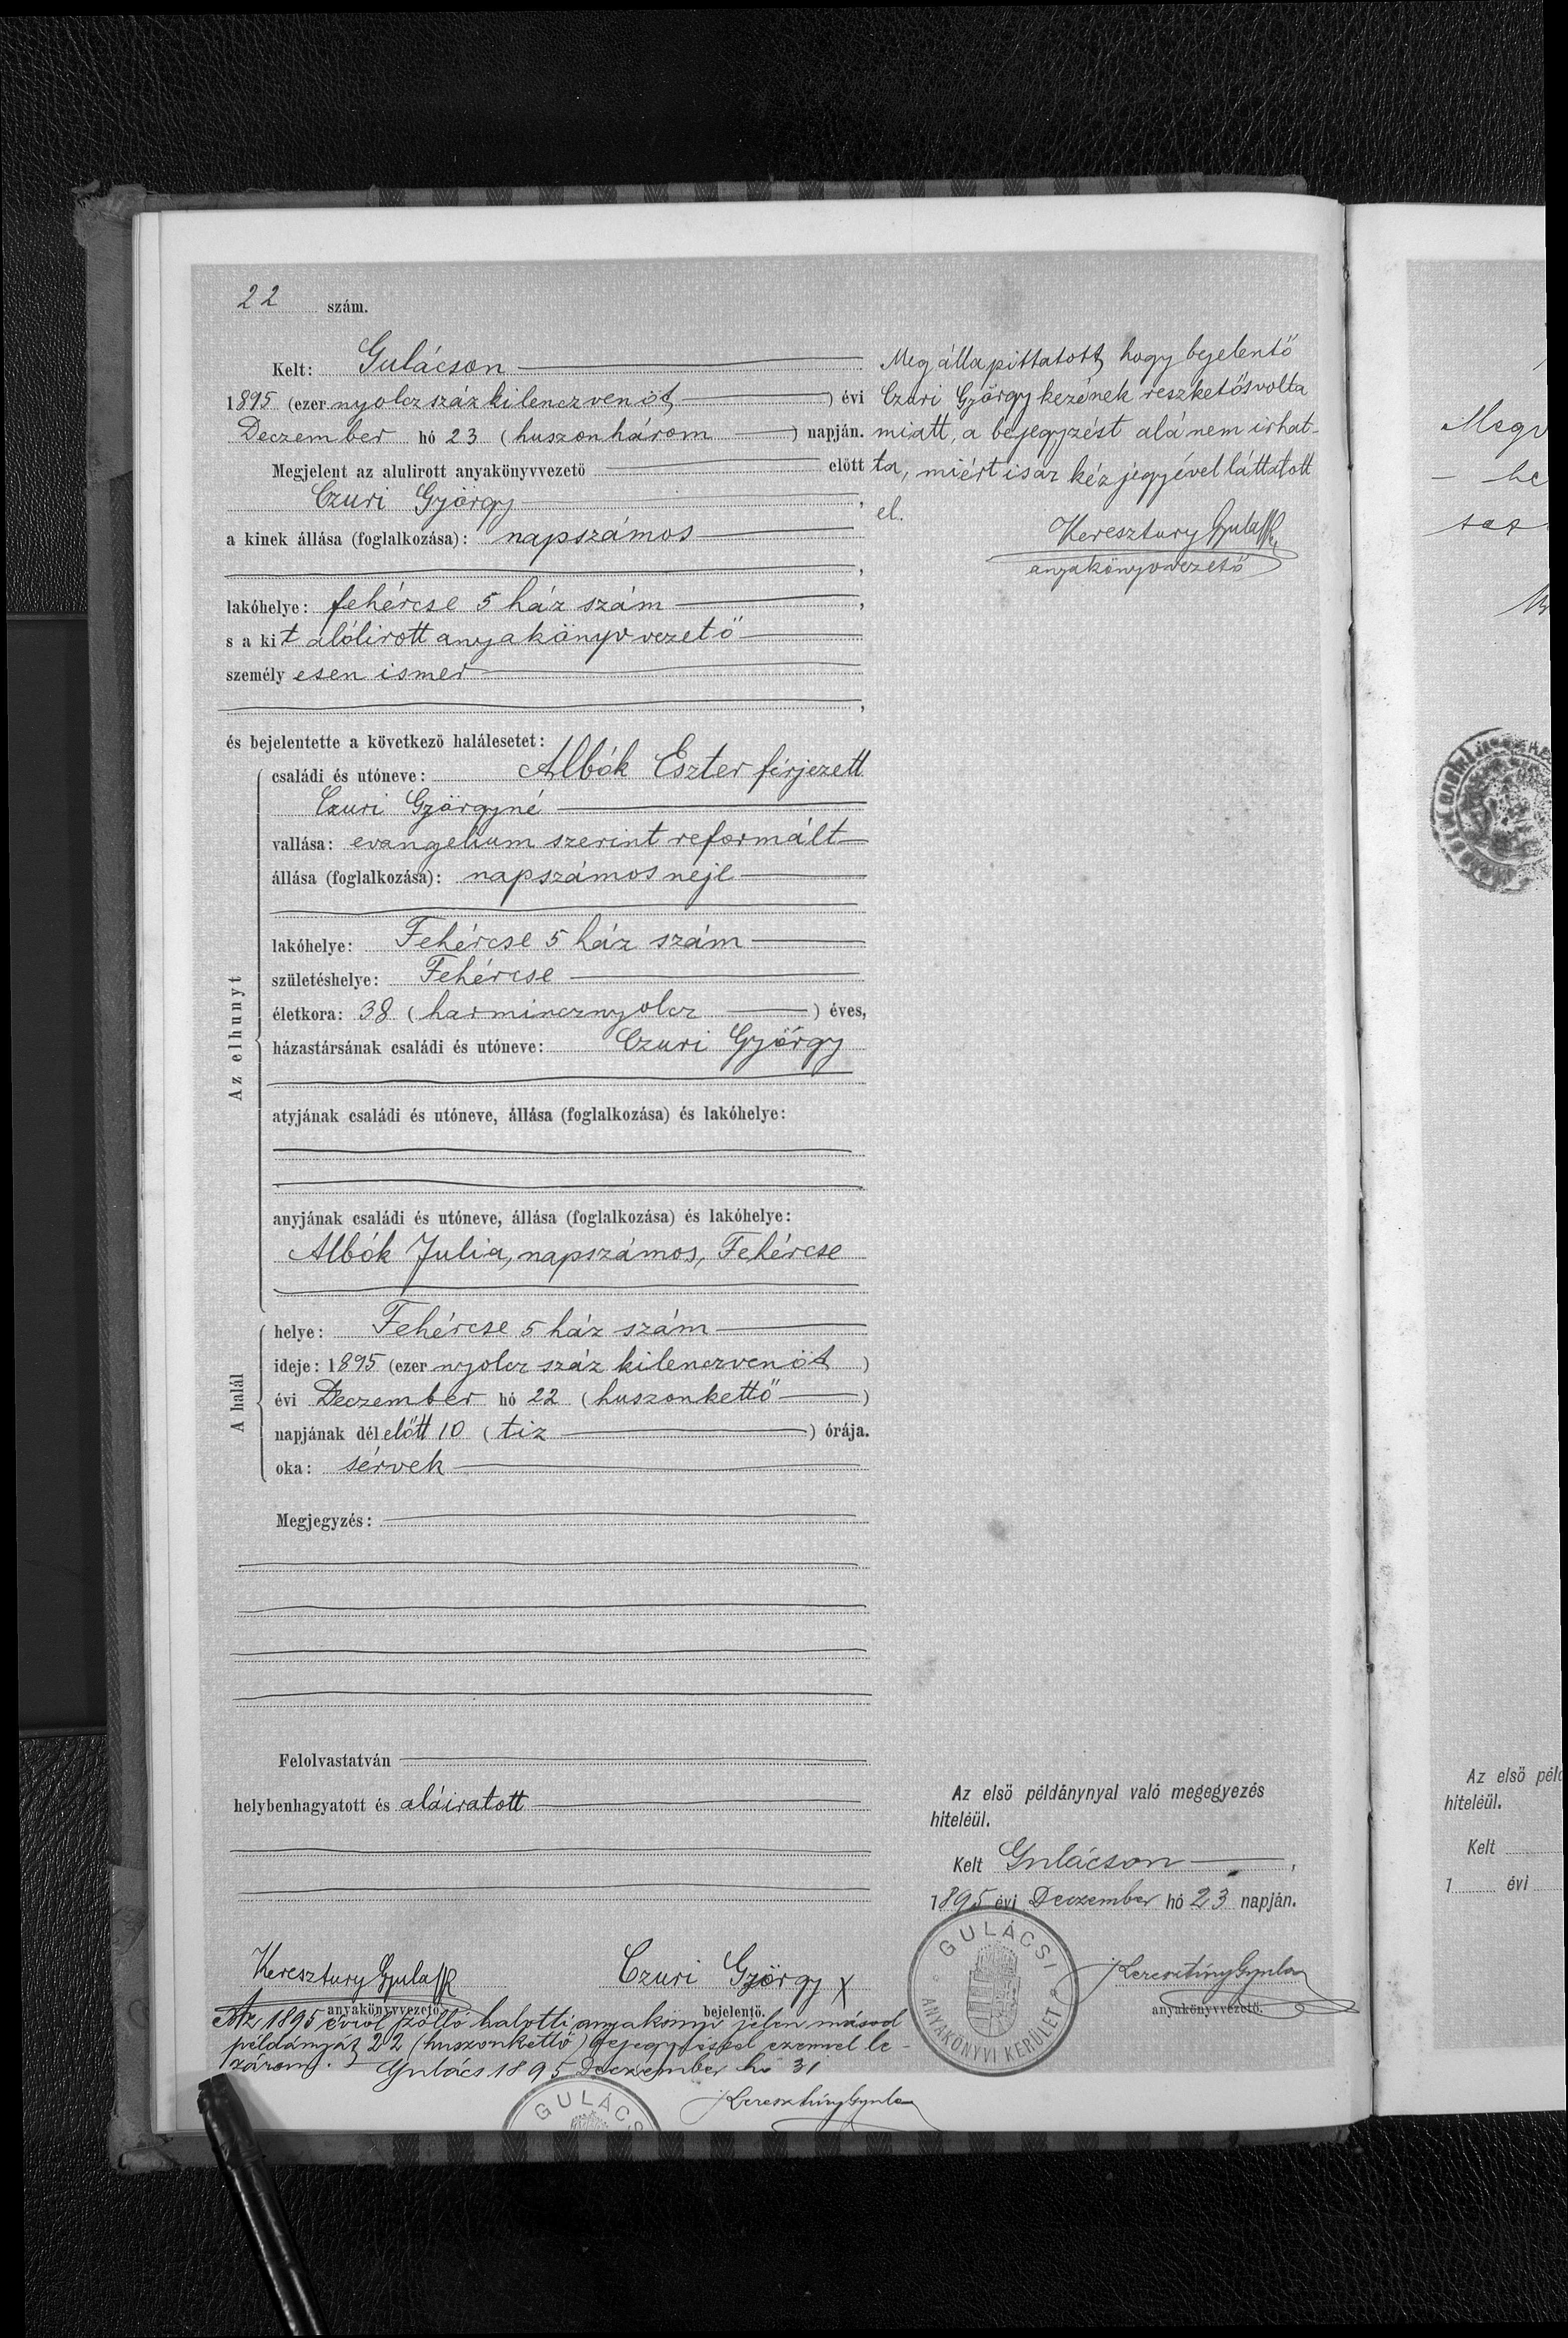 22 szám.
Kelt: Gulácson
1895 (ezer nyolcz száz kilenczven öt) évi
Deczember hó 23 (huszonhárom) napján.
Megjelent az alulirott anyakönyvvezető előtt
Czuri György,
a kinek állása (foglalkozása): napszámos
,
lakóhelye: fehércse 5 ház szám,
s a kit alólirott anyakönyv vezető
személyesen ismer
,
és bejelentette a következő halálesetet:
Az elhunyt
családi és utóneve: Albók Eszter férjezett
Czuri Györgyné
vallása: evangelium szerint reformált
állása (foglalkozása): napszámos neje
lakóhelye: Fehércse 5 ház szám
születéshelye: Fehércse
életkora: 38 (harmincznyolcz) éves,
házastársának családi és utóneve: Czuri György
atyjának családi és utóneve, állása (foglalkozása) és lakóhelye:
anyjának családi és utóneve, állása (foglalkozása) és lakóhelye:
Albók Julia, napszámos, Fehércse
A halál
helye: Fehércse 5 ház szám
ideje: 1895 (ezer nyolcz száz kilenczven öt)
évi Deczember hó 22 (huszonkettő)
napjának délelőtt 10 (tiz) órája.
oka: sérvek
Megjegyzés:
Felolvastatván
helybenhagyatott és aláiratott
Keresztury Gyula
anyakönyvvezető.
Czuri György x
bejelentő.
Az 1895 évről szólló halotti anyakönyv jelen másod
példányát 22 (huszonkettő) bejegyzéssel ezennel le-
zárom. Gulács 1895 Deczember hó 31
GULÁCS
Keresztury Gyula
Megállapittatott, hogy bejelentő
Czuri György kezének reszketős volta
miatt, a bejegyzést alá nem irhat-
ta, miért is az kézjegyével láttatott
el.
Keresztury Gyula
anyakönyvvezető
Az első példánynyal való megegyezés
hiteléül.
Kelt Gulácson,
1895 évi Deczember hó 23 napján.
GULÁCSI
ANYAKÖNYVI KERÜLET
Keresztury Gyula
anyakönyvvezető.
Az első péld
hiteléül.
Kelt
1 évi